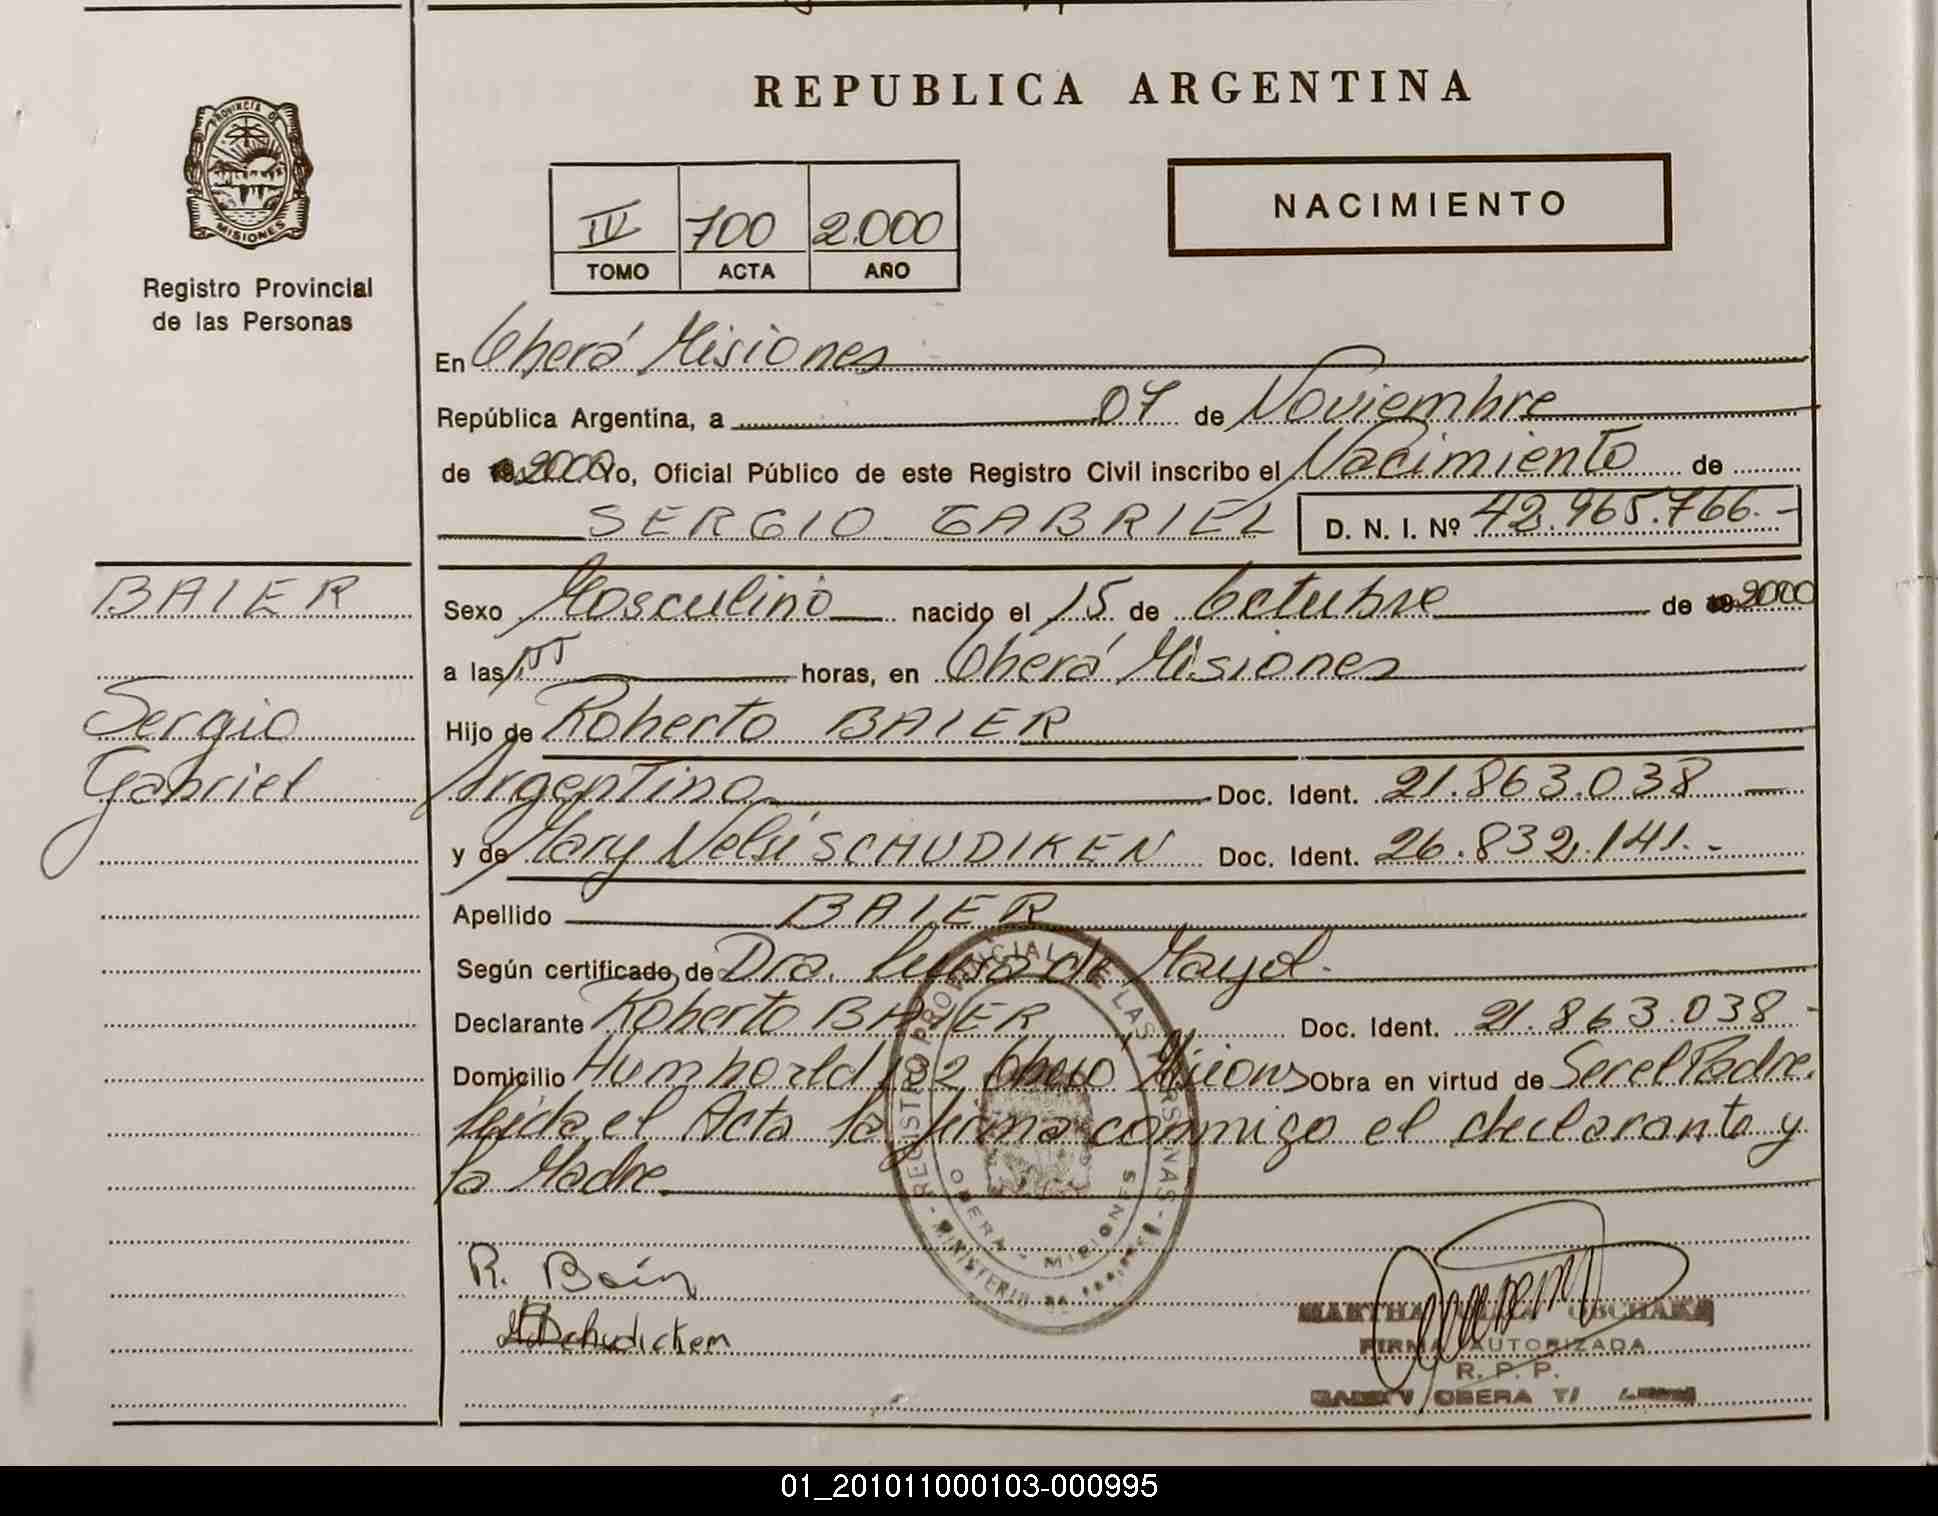 REPUBLICA ARGENTINA
PROVINCIA DE
MISIONES
Registro Provincial
de las Personas
IV 700 2.000
TOMO ACTA AÑO
NACIMIENTO
En Oberá Misiones
República Argentina, a 07 de Noviembre
de 2000 Yo, Oficial Público de este Registro Civil inscribo el Nacimiento de
SERGIO GABRIEL D. N. I. Nº 42.965.766.-
BAIER
Sergio
Gabriel
Sexo Masculino nacido el 15 de Octubre de 2000
a las horas, en Oberá Misiones
Hijo de Roberto BAIER
Argentino Doc. Ident. 21.863.038
y de Mary Nelsi SCHUDIKEN Doc. Ident. 26.832.141.-
Apellido BAIER
Según certificado de Dra. Luisa de Mayol.
Declarante Roberto BAIER Doc. Ident. 21.863.038-
Domicilio Humborld 132 Oberá Misiones Obra en virtud de Ser el Padre.
Leída el Acta la firma conmigo el declarante y
la Madre
REGISTRO PROVINCIAL DE LAS PERSONAS
OBERA - MISIONES
MINISTERIO DE
R. Baier
Schudicken
MARTHA
FIRMA AUTORIZADA
R. P. P.
OBERA
01_201011000103-000995